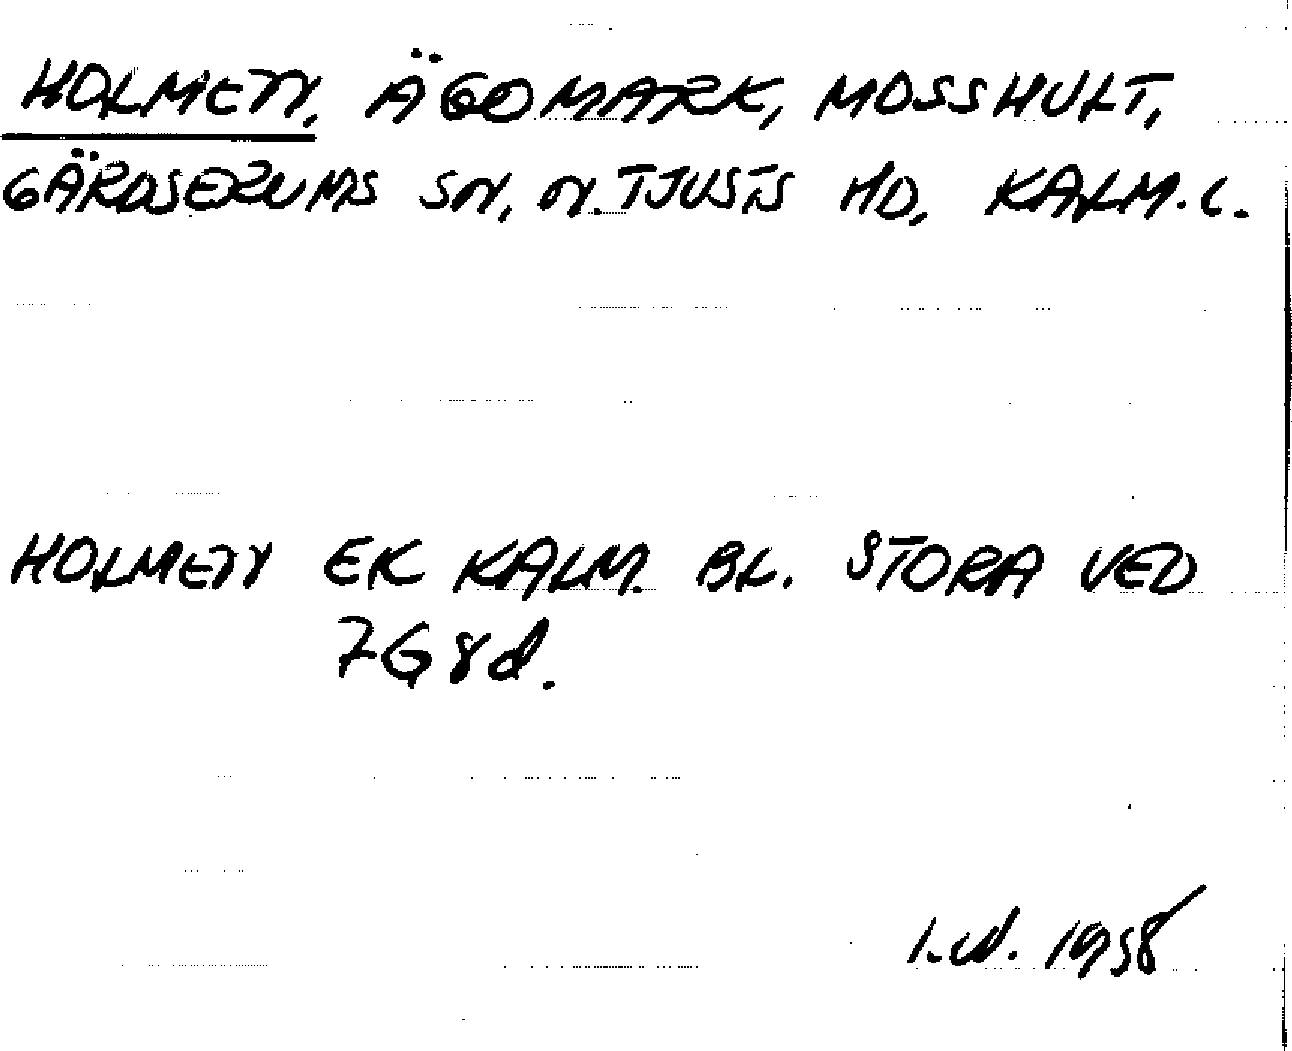 HOLMEN, ÄGOMARK, MOSSHULT,
GÄRDSERUMS SN, N. TJUSTS HD, KALM. L.
HOLMEN EK KALM. BL. STORA VED
7G8d.
1958